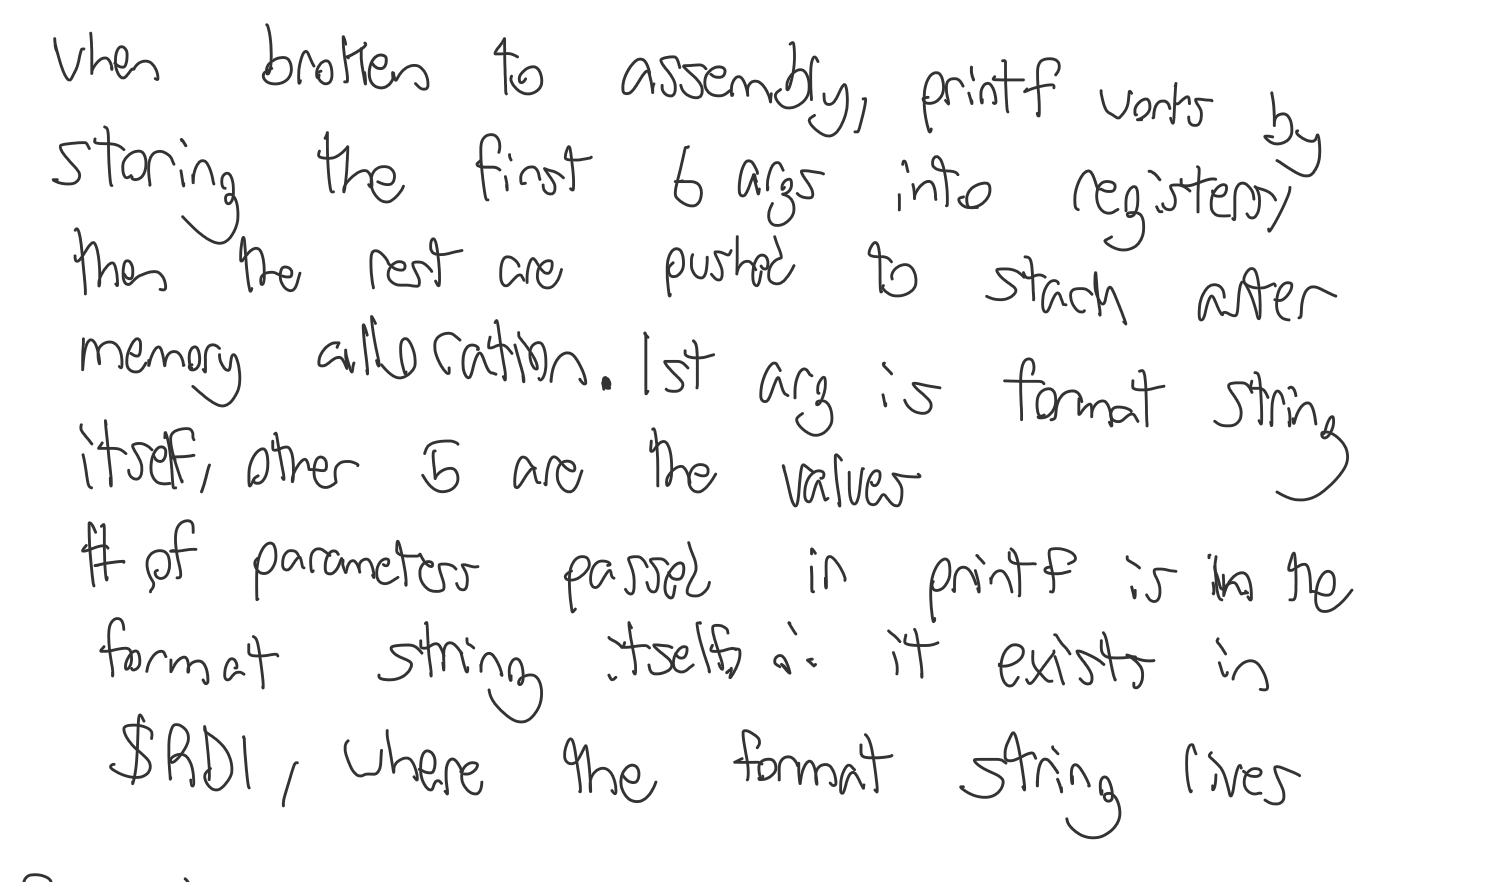 when broken to assembly, printf works by
storing the first 6 args into registers,
then the rest are pushed to stack after
memory allocation. 1st arg is format string
itself, other 5 are the values
# of parameters passed in printf is in the
format string itself, ∴ it exists in
$RDI, where the format string lives